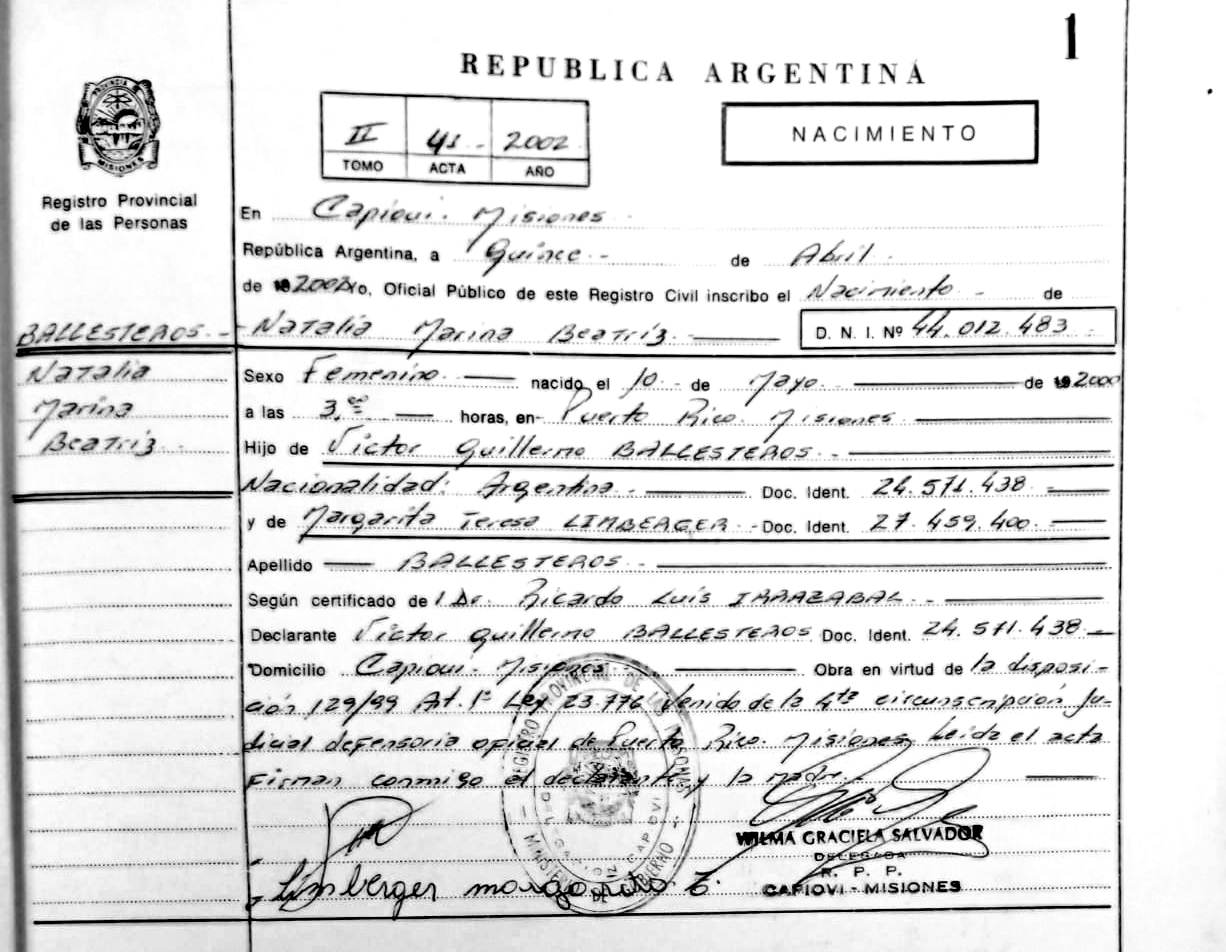 1
REPUBLICA ARGENTINA
PROVINCIA DE MISIONES
II 41 - 2002
TOMO ACTA AÑO
NACIMIENTO
Registro Provincial
de las Personas
En Capiovi. Misiones
República Argentina, a Quince - de Abril
de 2002 Yo, Oficial Público de este Registro Civil inscribo el Nacimiento - de
BALLESTEROS - Natalia Marina Beatríz. D. N. I. Nº 44.012.483
Natalia
Marina
Beatriz
Sexo Femenino nacido el 10 - de Mayo de 2000
a las 3.00 horas, en - Puerto Rico. Misiones
Hijo de Victor Guillermo BALLESTEROS -
Nacionalidad: Argentina - Doc. Ident. 24.571.438
y de Margarita Teresa LIMBERGER - Doc. Ident. 27.459.400
Apellido BALLESTEROS -
Según certificado de l Dr. Ricardo Luís IRRAZABAL -
Declarante Victor Guillermo BALLESTEROS Doc. Ident. 24.571.438
Domicilio Capiovi - Misiones Obra en virtud de la disposi-
ción 129/99 Art. 1º Ley 23.776 Venido de la 4ta circunscripción Ju-
dicial defensoria oficial de Puerto Rico. Misiones, Leida el acta
Firman conmigo el declarante y la madre.
REGISTRO PROVINCIAL DE LAS PERSONAS
DELEGACION CAPIOVI
MINISTERIO DE GOBIERNO
WILMA GRACIELA SALVADOR
DELEGADA
R. P. P.
CAPIOVI - MISIONES
Limberger margarita T.